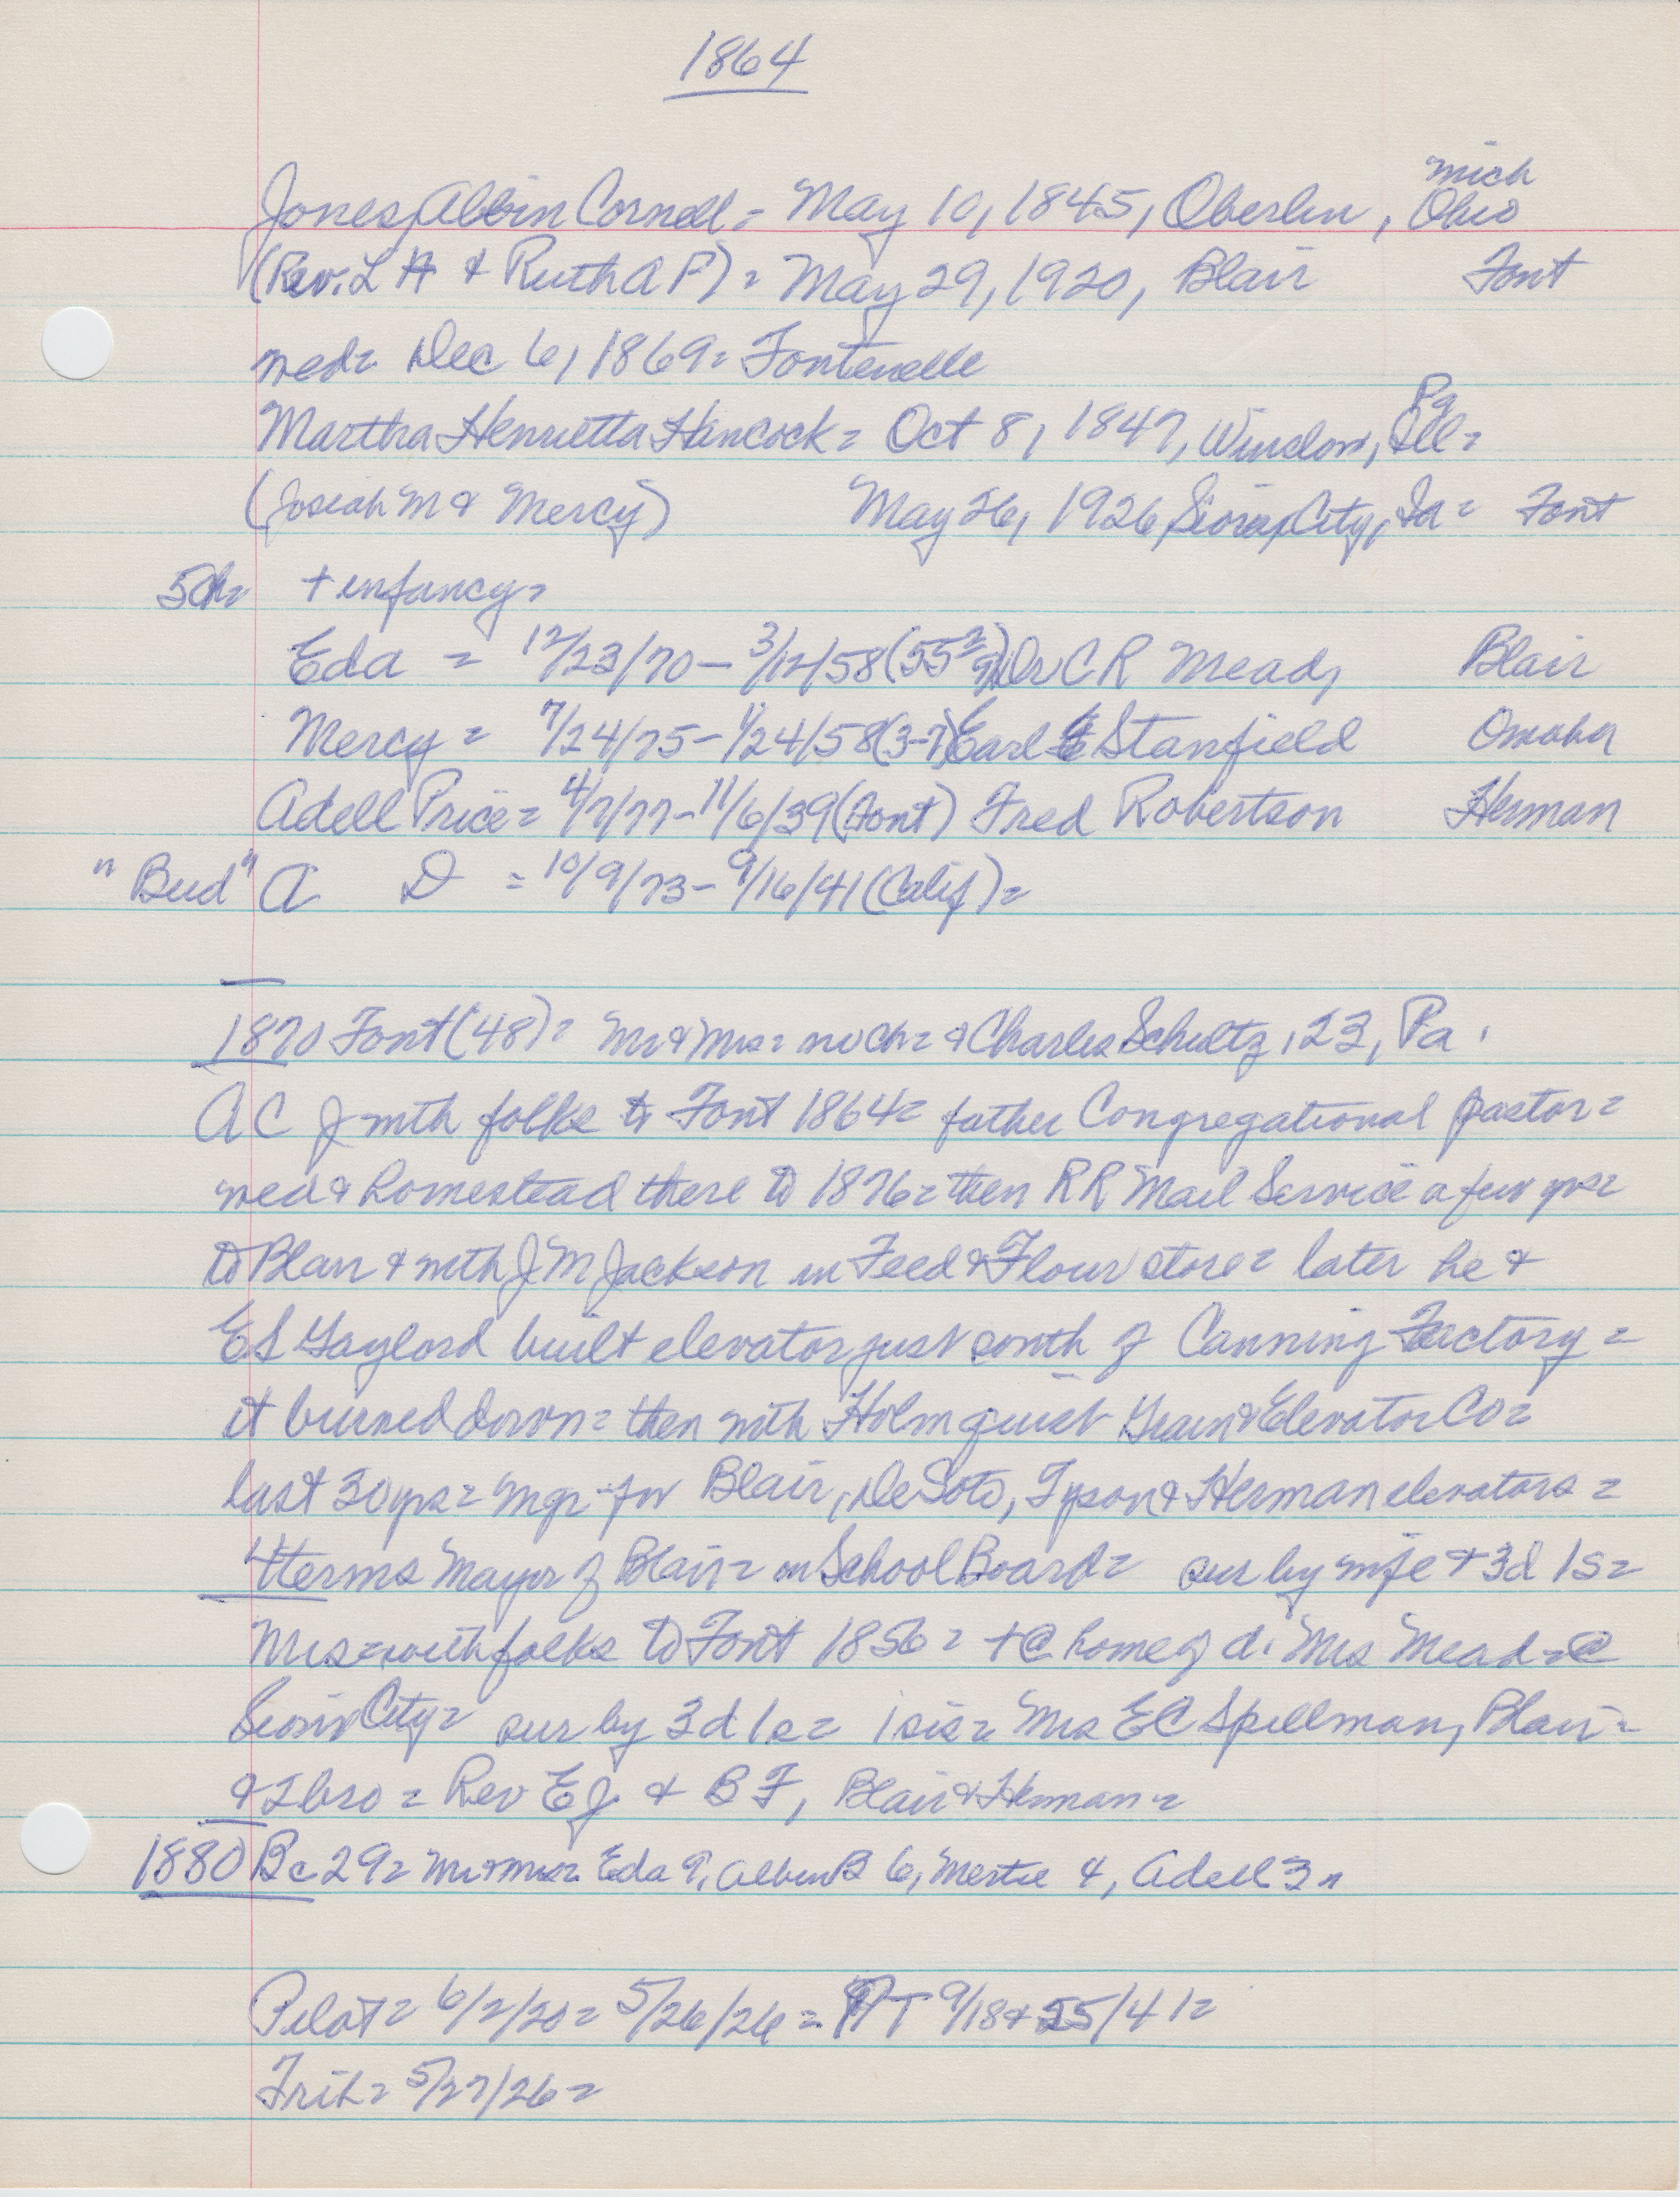 1864
mich
Jones, Albin Cornell = May 10, 1845, Oberlin, Ohio
(Rev. L H & Ruth A P) = May 29, 1920, Blair Font
wed = Dec 6, 1869 = Fontenelle
Pa
Martha Henrietta Hancock = Oct 8, 1847, Winslow, Ill =
(Josiah M & Mercy) May 26, 1926, Sioux City, Ia = Font
5 ch = + infancy =
Eda = 12/23/70 - 3/12/58 Dr C R Mead, Blair
Mercy = 7/24/75 - 1/24/58 (3-7) Earl E Stanfield Omaha
Adell Price = 4/7/77 - 11/6/39 (Font) Fred Robertson Herman
"Bud" A D = 10/9/73 - 9/16/41 (Calif) =
1870 Font (48) = Mr & Mrs = no ch = & Charles Schultz, 23, Pa.
A C J with folks to Font 1864 = father Congregational pastor =
wed & homestead there to 1876 = then RR Mail Service a few yrs =
to Blair & with J M Jackson in Feed & Flour store = later he &
E S Gaylord built elevator just south of Canning Factory =
it burned down = then with Holmquist Grain & Elevator Co =
last 30 yrs = mgr for Blair, De Soto, Tyson & Herman elevators =
4 terms Mayor of Blair = on School Board = sur by wife & 3d 1s =
Mrs = with folks to Font 1856 = + @ home of d. Mrs Mead = @
Sioux City = sur by 3d 1s = 1 sis = Mrs E C Spellman, Blair =
& 2 bro = Rev E J & B F, Blair & Herman =
1880 Bc 29 = Mr & Mrs = Eda 9, Albin B 6, Mertie 4, Adell 3 =
Pilot = 6/2/20 = 5/26/26 = PT 9/18 & 25/41 =
Trib = 5/27/26 =